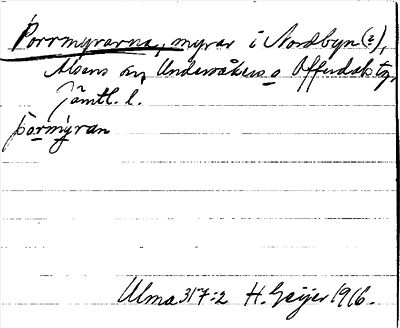 Porrmyrarna, myrar i Nordbyn(?),
Alsens sn, Undersåkers o Offerdals tg,
Jämtl. l.
pormyran
Ulma 317:2 H. Geijer 1916.